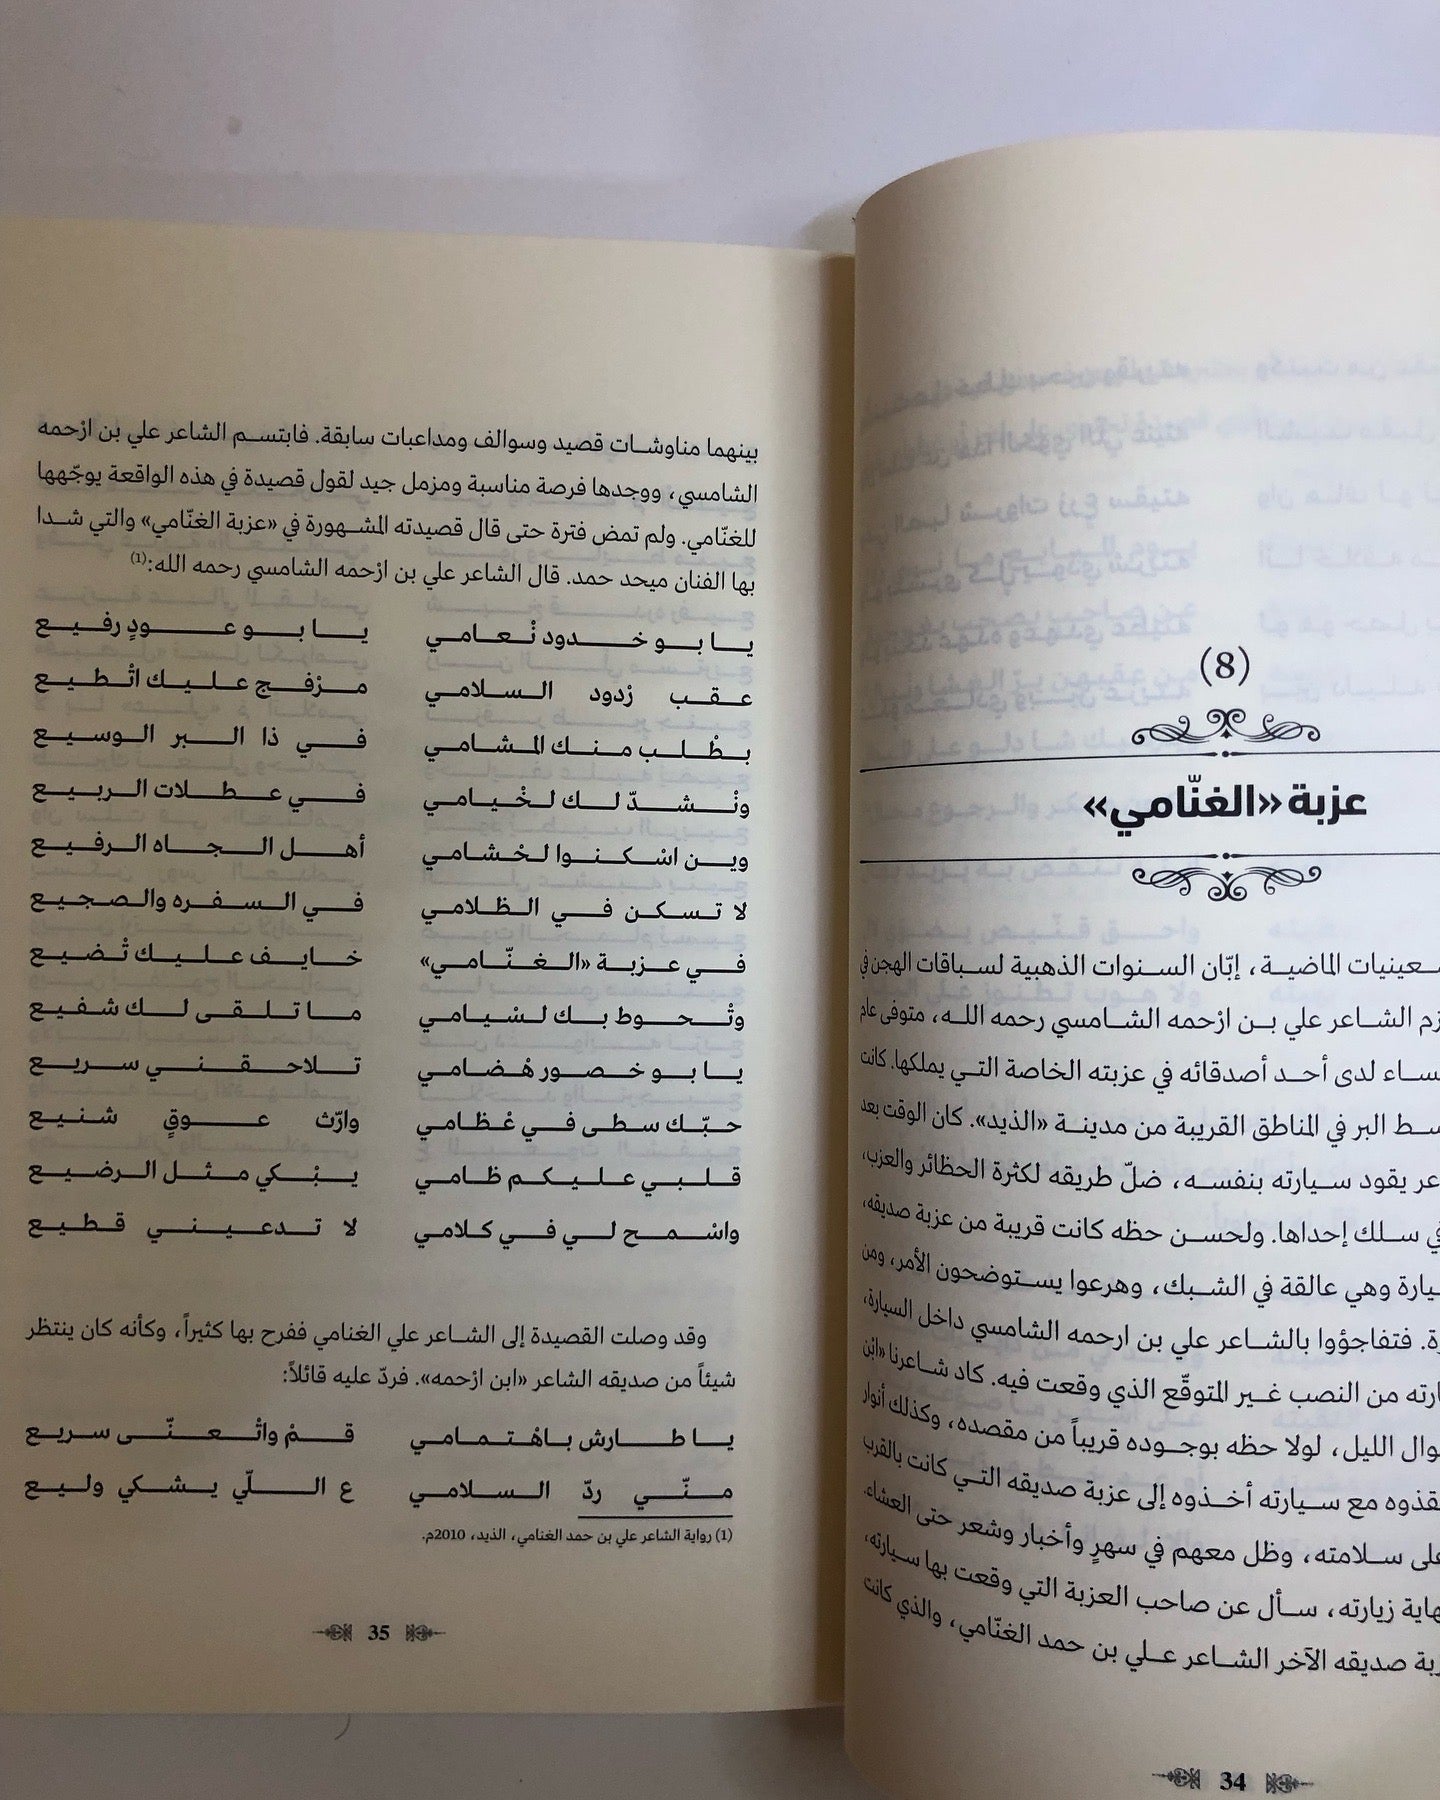 (8)
عزبة «الغنّامي»
الماضية، إبّان السنوات الذهبية لسباقات الهجن في
الشاعر علي بن ازْحمه الشامسي رحمه الله، متوفى عام
لدى أحد أصدقائه في عزبته الخاصة التي يملكها. كانت
البر في المناطق القريبة من مدينة «الذيد». كان الوقت بعد
يقود سيارته بنفسه، ضلّ طريقه لكثرة الحظائر والعزب،
سلك إحداها. ولحسن حظه كانت قريبة من عزبة صديقه،
وهي عالقة في الشبك، وهرعوا يستوضحون الأمر، ومن
فتفاجؤوا بالشاعر علي بن ارحمه الشامسي داخل السيارة،
من النصب غير المتوقّع الذي وقعت فيه. كاد شاعرنا «ابن
الليل، لولا حظه بوجوده قريباً من مقصده، وكذلك أنوار
مع سيارته أخذوه إلى عزبة صديقه التي كانت بالقرب
سلامته، وظل معهم في سهرٍ وأخبار وشعر حتى العشاء.
زيارته، سأل عن صاحب العزبة التي وقعت بها سيارته،
صديقه الآخر الشاعر علي بن حمد الغنّامي، والذي كانت
34
بينهما مناوشات قصيد وسوالف ومداعبات سابقة. فابتسم الشاعر علي بن ازْحمه
الشامسي، ووجدها فرصة مناسبة ومزمل جيد لقول قصيدة في هذه الواقعة يوجّهها
للغنّامي. ولم تمض فترة حتى قال قصيدته المشهورة في «عزبة الغنّامي» والتي شدا
بها الفنان ميحد حمد. قال الشاعر علي بن ازْحمه الشامسي رحمه الله:(1)
يا بو خدود نْعامي يا بو عودٍ رفيع
عقب رْدود السلامي مرْفج عليك اتْطيع
بطْلب منك المشامي في ذا البر الوسيع
ونْشدّ لك لخْيامي في عطلات الربيع
وين اسْكنوا لخْشامي أهل الجاه الرفيع
لا تسكن في الظلامي في السفره والصجيع
في عزبة «الغنّامي» خايف عليك تْضيع
وتْحوط بك لسْيامي ما تلقى لك شفيع
يا بو خصور هْضامي تلاحقني سريع
حبّك سطى في عْظامي وارّث عوقٍ شنيع
قلبي عليكم ظامي يبْكي مثل الرضيع
واسْمح لي في كلامي لا تدعيني قطيع
وقد وصلت القصيدة إلى الشاعر علي الغنامي ففرح بها كثيراً، وكأنه كان ينتظر
شيئاً من صديقه الشاعر «ابن ازْحمه». فردّ عليه قائلاً:
يا طارش باهْتمامي قمْ واتْعنّى سريع
منّي ردّ السلامي ع اللّي يشكي وليع
(1) رواية الشاعر علي بن حمد الغنامي، الذيد، 2010م.
35